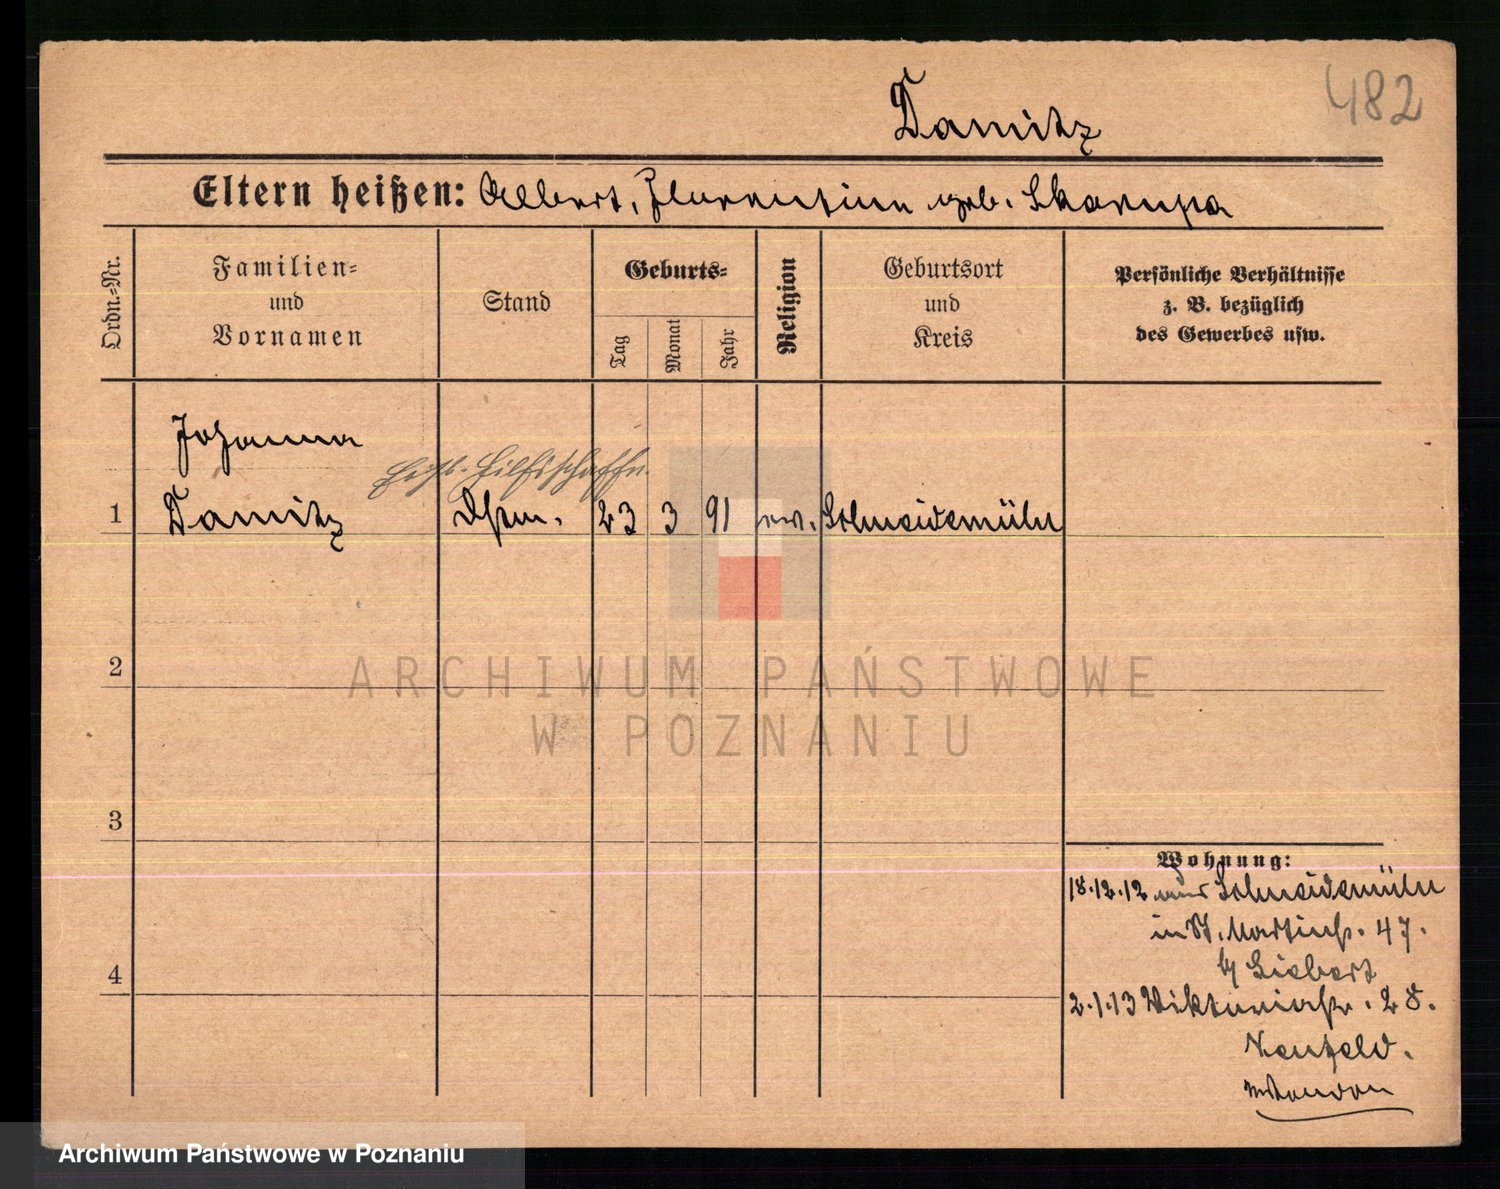 482
Damitz
Eltern heißen: Albert, Florentine geb. Skorupa
Ordn.-Nr.
Familien-
und
Vornamen
Stand
Geburts-
Tag
Monat
Jahr
Religion
Geburtsort
und
Kreis
Persönliche Verhältnisse
z. B. bezüglich
des Gewerbes usw.
Johanna
Hilfsschaffn.
1 Damitz 23 3 91 ev. Schneidemühl
2
ARCHIWUM PAŃSTWOWE
W POZNANIU
3
4
Wohnung:
18.12.12 aus Schneidemühl
in St. Martinstr. 47.
b/ Siebert
2.1.13 Viktoriastr. 28.
Neufeld.
Archiwum Państwowe w Poznaniu